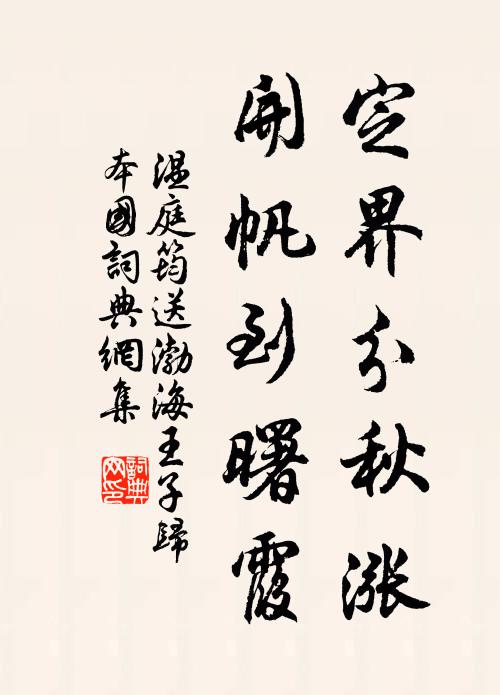 定界分秋漲
開帆到曙霞
溫庭筠送渤海王子歸
本國詞典網集
詞典
网印